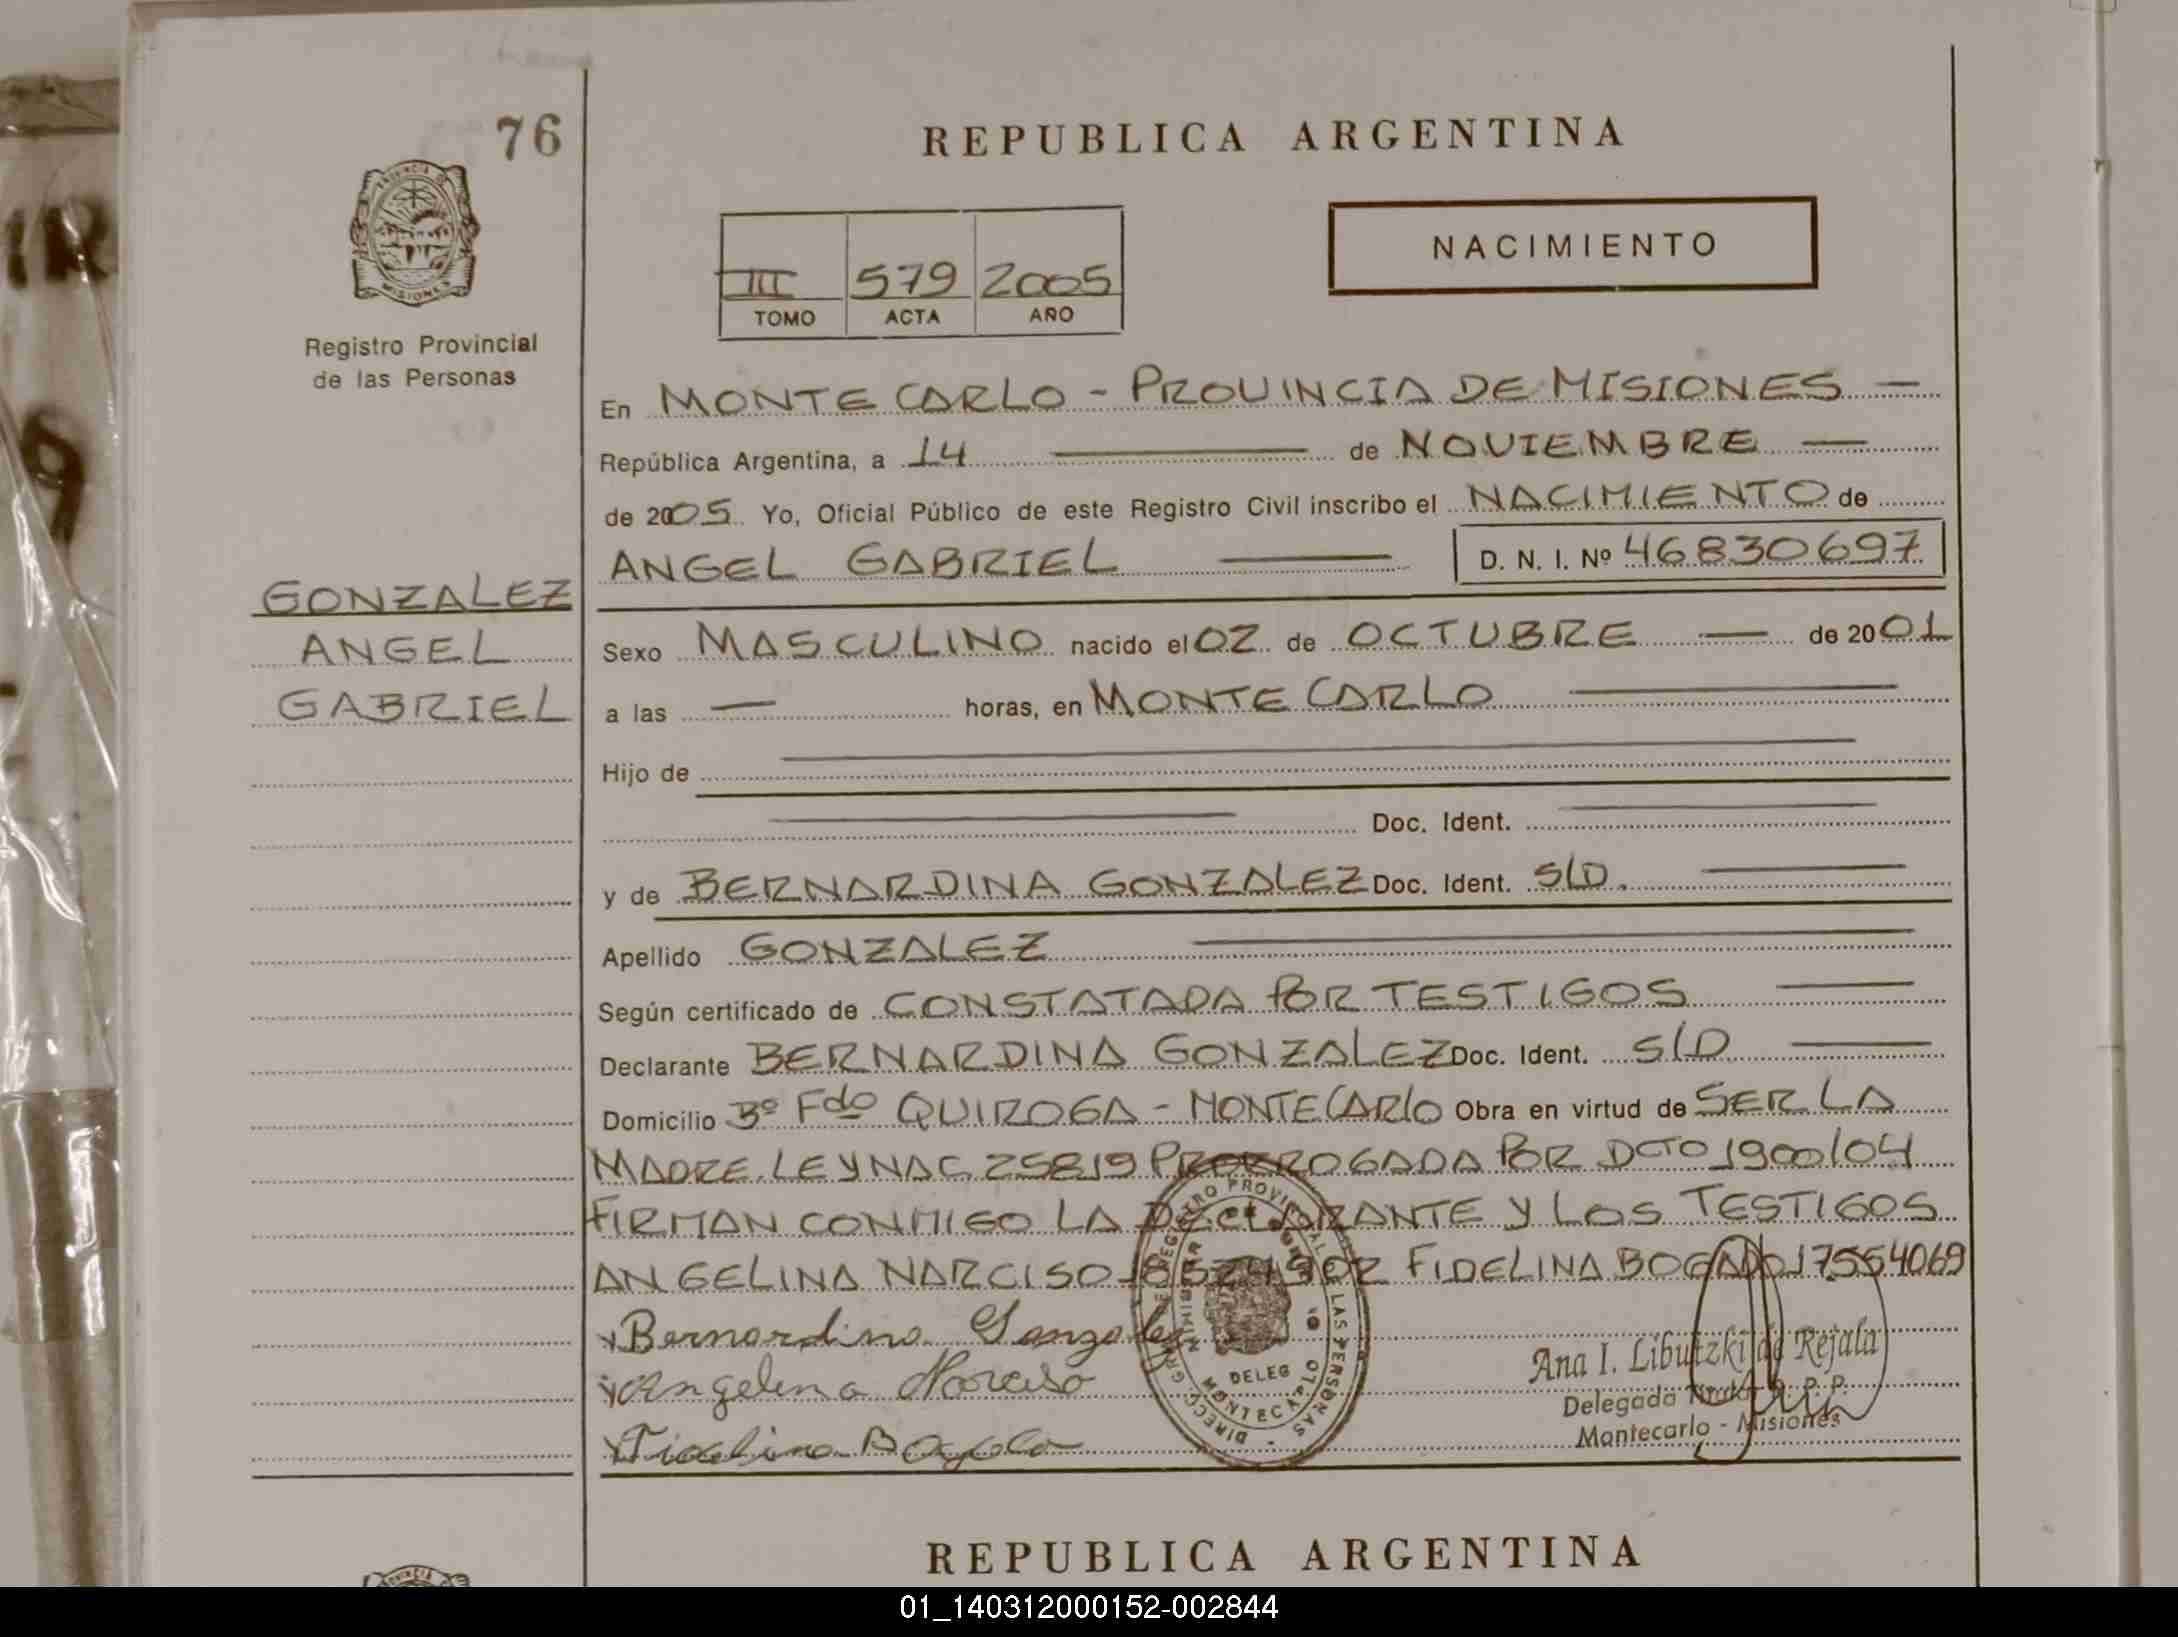 76
REPUBLICA ARGENTINA
PROVINCIA DE
MISIONES
Registro Provincial
de las Personas
NACIMIENTO
III 579 2005
TOMO ACTA AÑO
En MONTECARLO - PROVINCIA DE MISIONES —
República Argentina, a 14 — de NOVIEMBRE —
de 2005 Yo, Oficial Público de este Registro Civil inscribo el NACIMIENTO de
ANGEL GABRIEL — D. N. I. Nº 46830697
GONZALEZ
ANGEL
GABRIEL
Sexo MASCULINO nacido el 02 de OCTUBRE — de 2001
a las — horas, en MONTECARLO —
Hijo de —
— Doc. Ident. —
y de BERNARDINA GONZALEZ Doc. Ident. S/D. —
Apellido GONZALEZ —
Según certificado de CONSTATADA POR TESTIGOS —
Declarante BERNARDINA GONZALEZ Doc. Ident. S/D —
Domicilio Bº Fdo QUIROGA - MONTECARLO Obra en virtud de SER LA
MADRE. LEY NAC. 25819 PRORROGADA POR DCTO 1900/04
FIRMAN CONMIGO LA DECLARANTE Y LOS TESTIGOS
ANGELINA NARCISO FIDELINA BOGADO 17554069
Bernardina Gonzalez
Angelina Narciso
Fidelina Bogado
DELEG
MONTECARLO
Ana I. Libutzki de Rejala
Delegada R. P. P.
Montecarlo - Misiones
REPUBLICA ARGENTINA
01_140312000152-002844